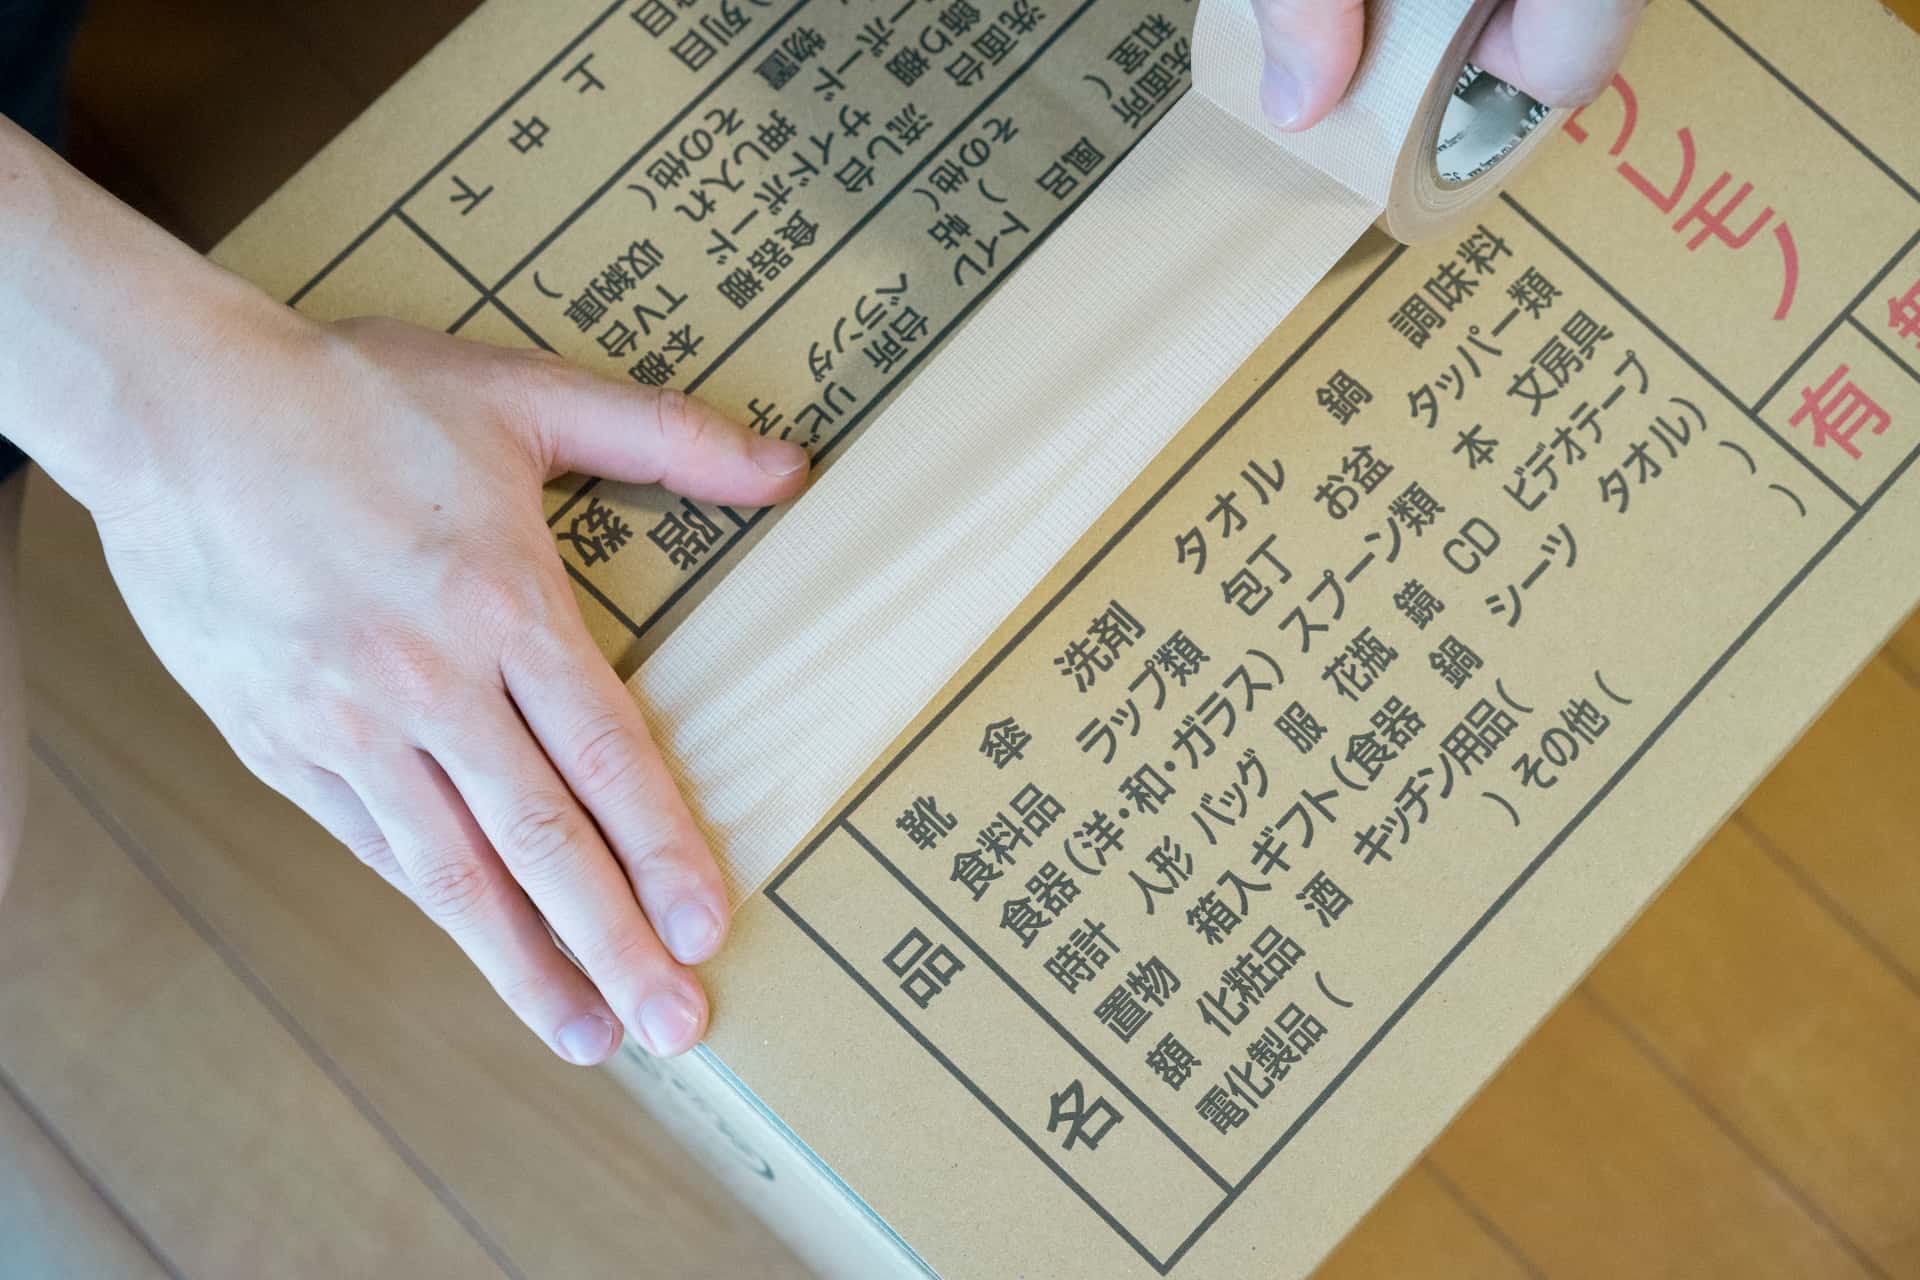 品名
靴 傘 洗剤 タオル 鍋 調味料
食料品 ラップ類 包丁 お盆 タッパー類
食器(洋・和・ガラス) スプーン類 本 文房具
時計 人形 バッグ 服 花瓶 鏡 CD ビデオテープ
置物 箱入ギフト(食器 鍋 シーツ タオル)
額 化粧品 酒 キッチン用品( )
電化製品( ) その他( )
ワレモノ
有
無
階数
台所 風呂 洗面所
ベランダ トイレ 和室(
)帖 その他(
本棚 食器棚 流し台 洗面台
TV台 サイドボード 飾り棚
収納庫 押し入れ 物置
その他( )
上 中 下
列目